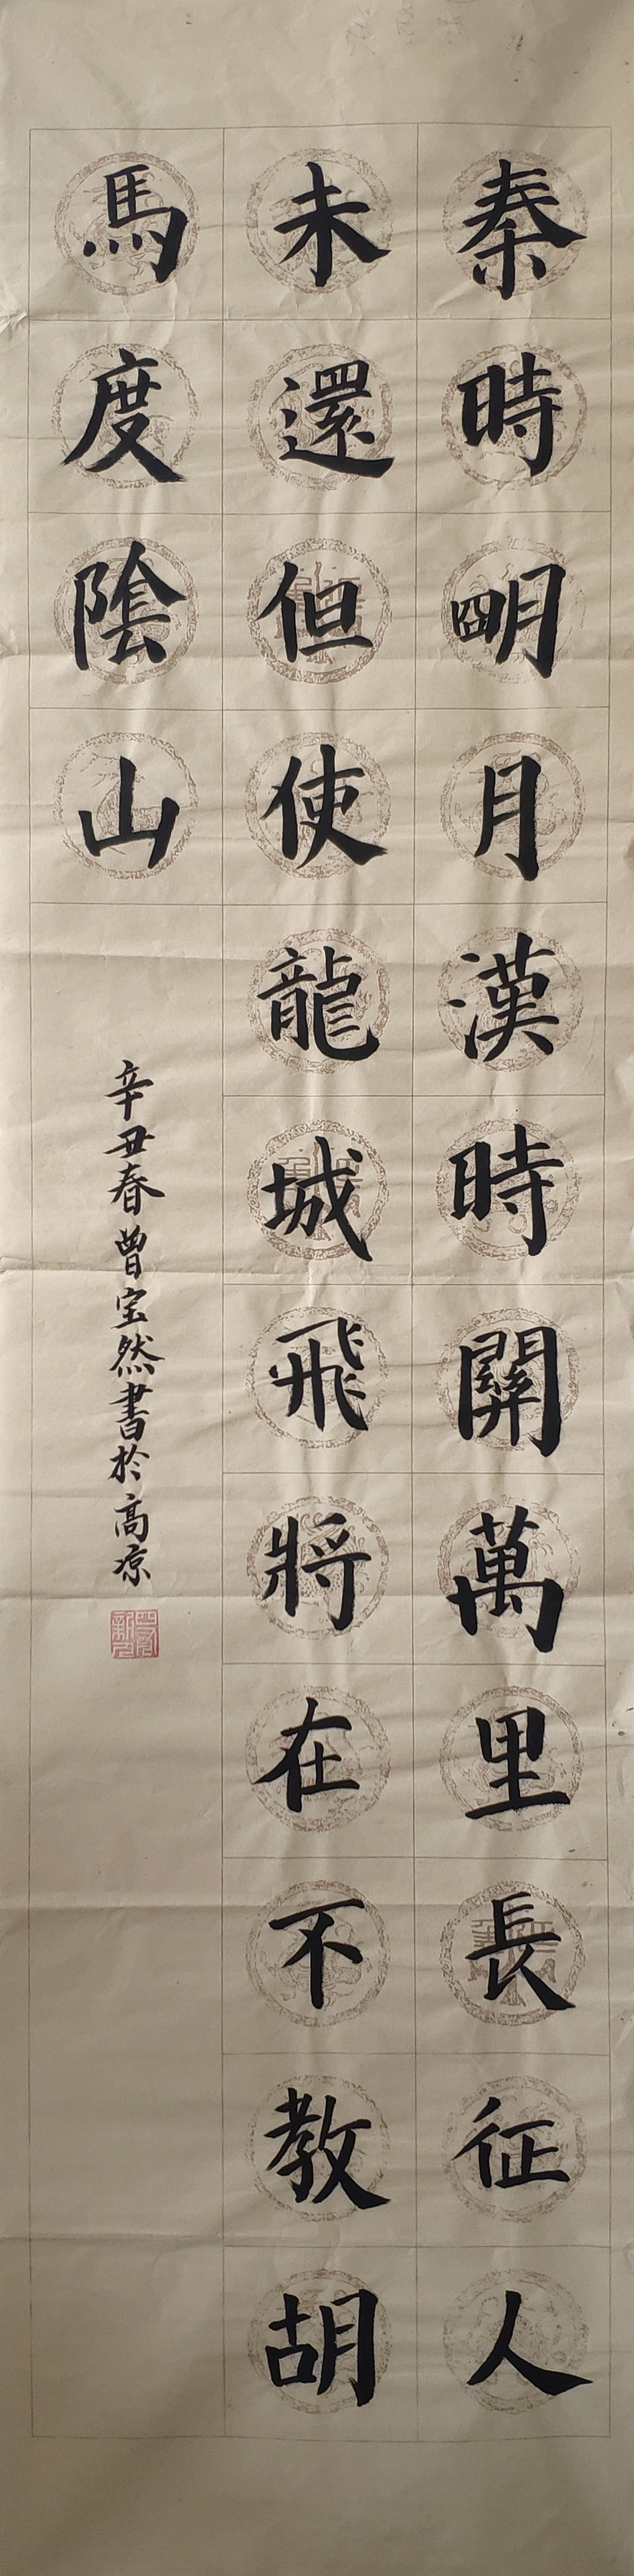 秦時明月漢時關萬里長征人
未還但使龍城飛將在不教胡
馬度陰山
辛丑春曾宝然書於高凉